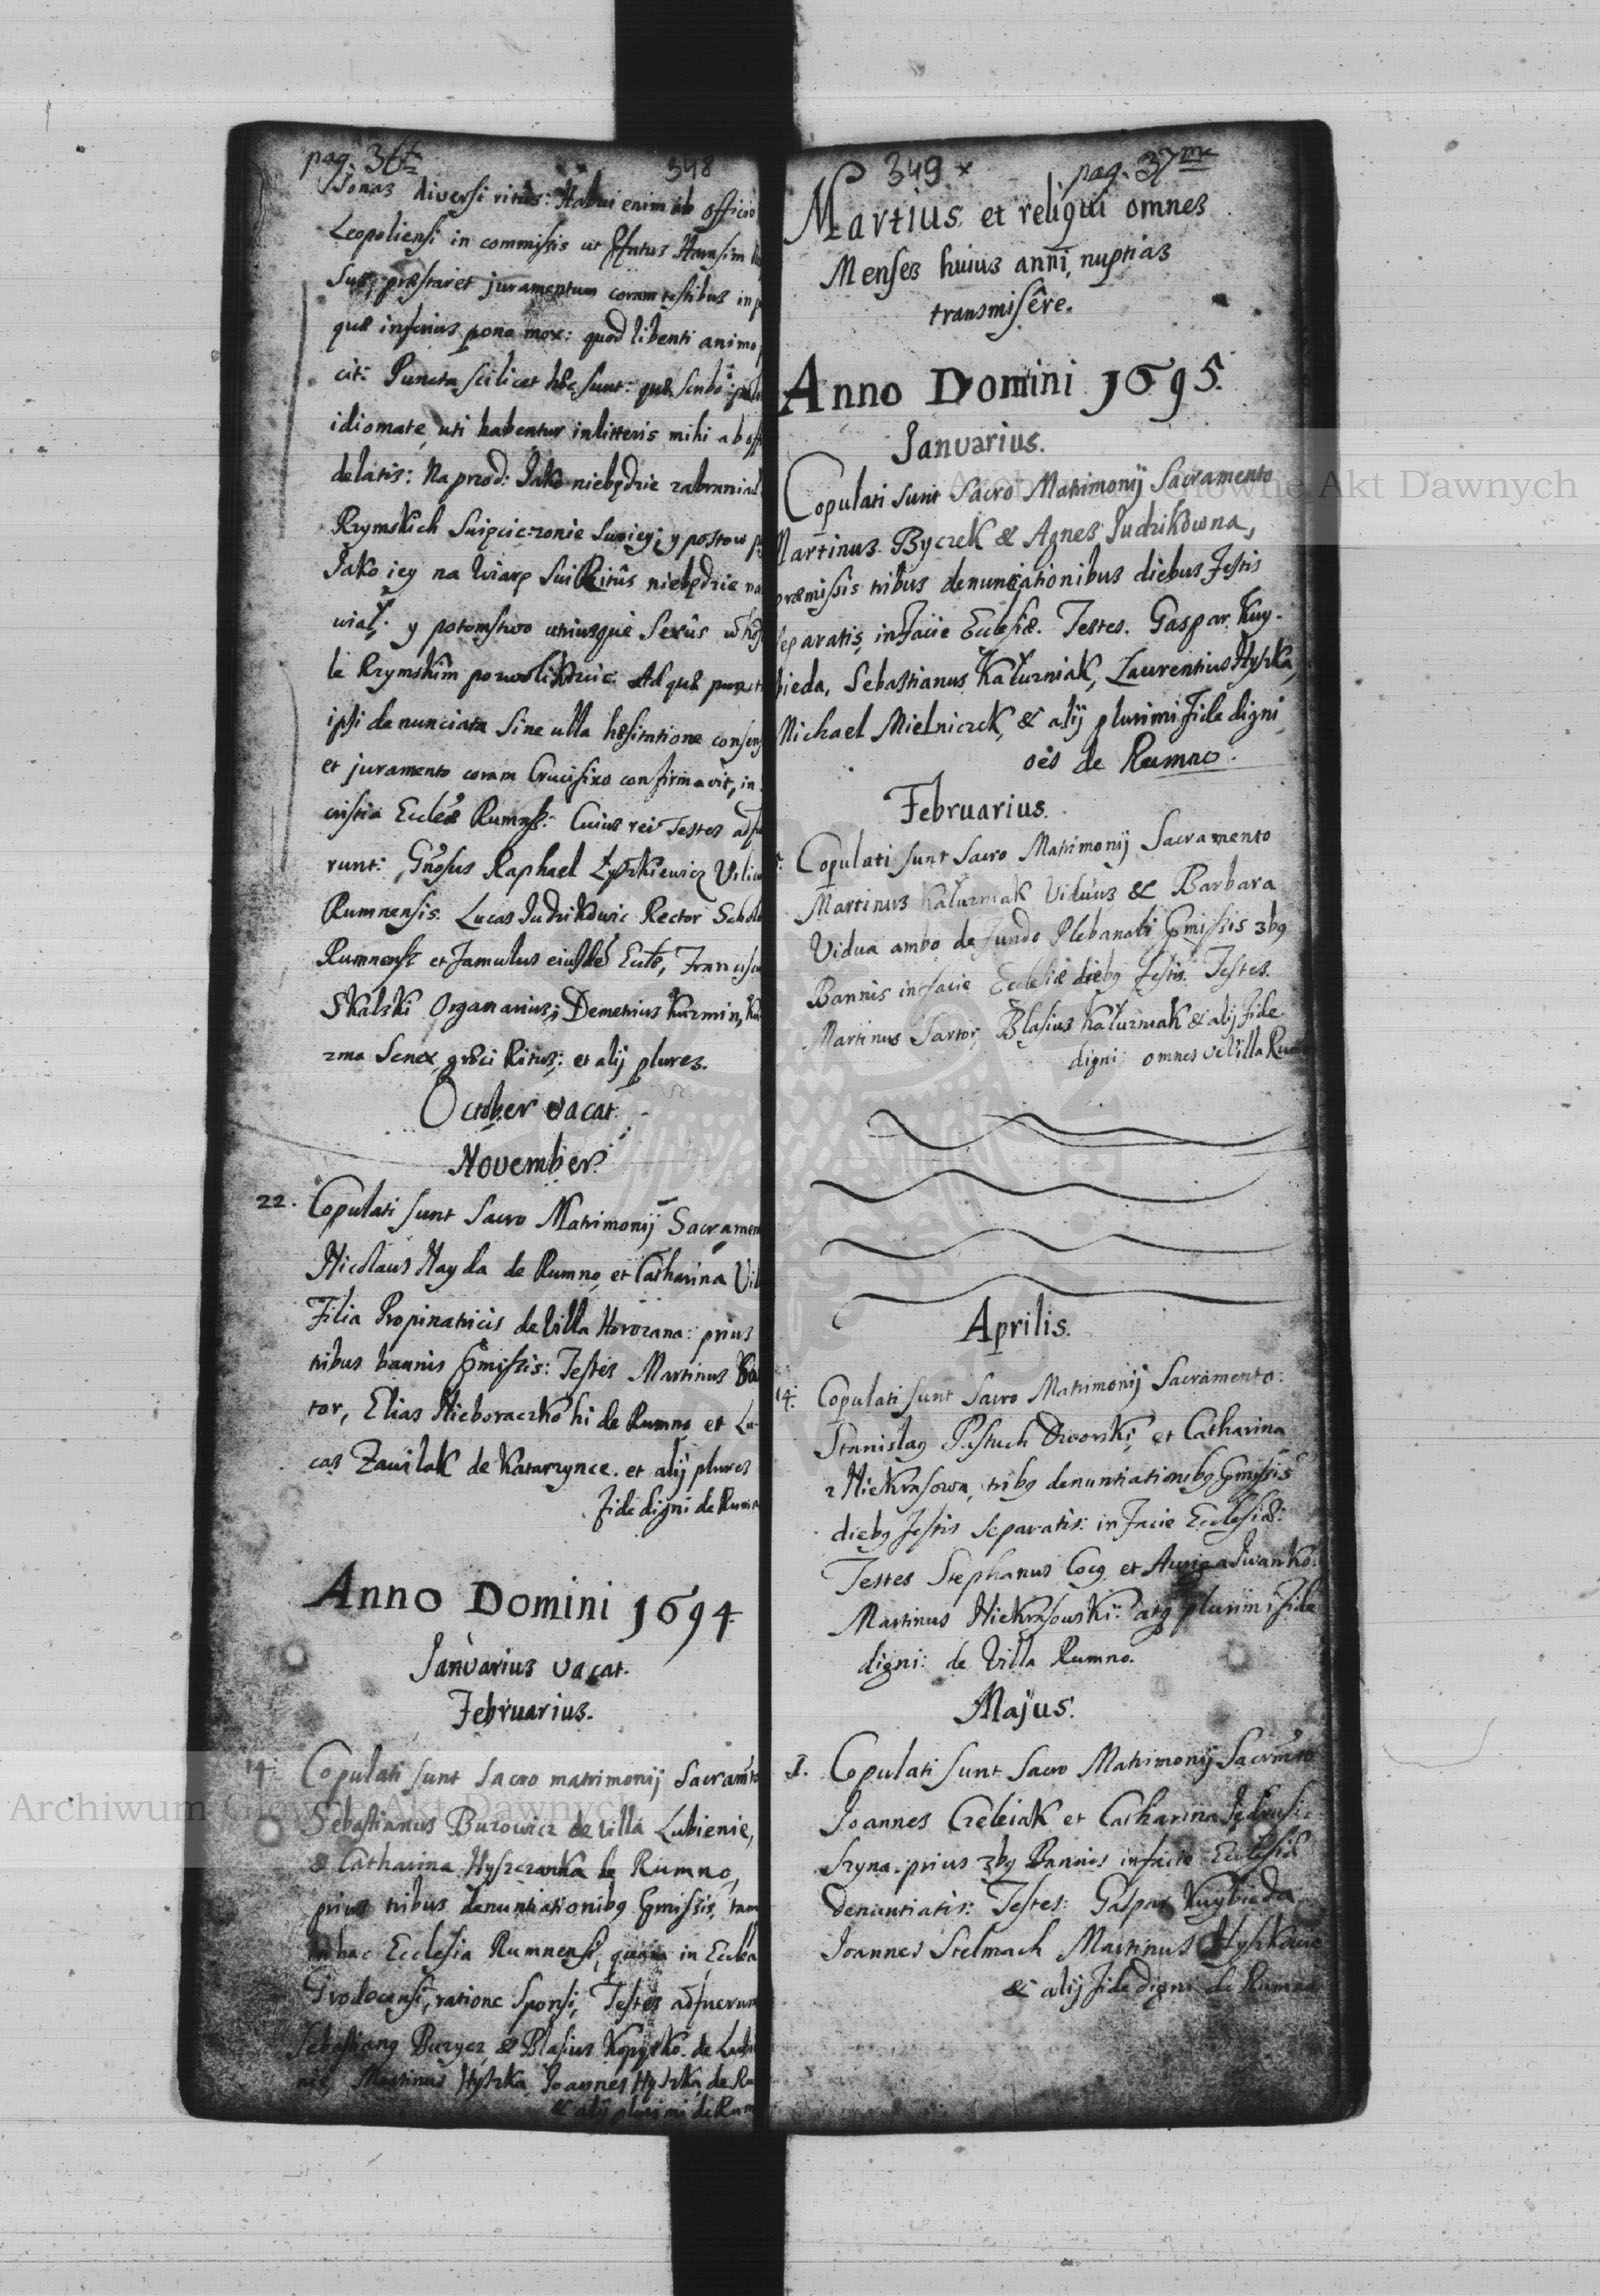 pag. 36
348
sonas diversi ritus: Habui enim ab officio
Leopoliensi in commissis ut
suus, præstaret juramentum coram testibus in
quæ inferius pono mox: quod libenti animo
cit: Puncta scilicet hæc sunt: quæ
idiomate, uti habentur in litteris mihi ab off
delatis: Naprzod: Jako niebędzie zabraniał
Rzymskich Swięcic żonie swoiey, y postow
Jako iey na Wiarę sui Ritûs niebędzie na
wiał. y potomstwo utriusque Sexûs
le Rzymskim Ad quæ puncta
ipsi denunciata sine ulla hæsitatione consens
et juramento coram Crucifixo confirmavit, in
cristia Eccleæ Rumnẽ: Cuius rei Testes adfu
runt: Gñosus Raphael Łyszkiewicz
Rumnensis. Lucas Judzikowic Rector Schol
Rumnens et famulus eiusdẽ Eccłæ, Francisc
Skalski Organarius; Demetrius Kuzmin, Ku
zma Senex, græci Ritus; et alij plures.
October vacat.
November.
22. Copulati sunt Sacro Matrimonij Sacramen
Nicolaus Hayda de Rumno, et Catharina
Filia Propinatricis de Villa Horozana: prius
tribus bannis pmissis: Testes Martinus Sar
tor, Elias Nieboraczko hi de Rumno et Lu
cas Zawilak de Katarzynce. et alij plures
fide digni de Rumn
Anno Domini 1694.
Januarius vacat.
Februarius.
14. Copulati sunt Sacro matrimonij Sacramto
Sebastianus Burowicz de Villa Lubienie,
& Catharina Hyszczanka de Rumno,
prius tribus denuntiationibq pmissis, tam
in hac Ecclesia Rumnensi, quam in Eccłia
Grodecensi, ratione Sponsi, Testes adfuerun
Sebastianq Burycz & Blasius Kopytko de Lubi
nie, Martinus Hyszka Joannes Hyszka de Ru
& alij plurimi de Rum
349 x
pag. 37me
Martius et reliqui omnes
Menses huius anni, nuptias
transmisêre.
Anno Domini 1695.
Januarius.
Copulati sunt Sacro Matrimonij Sacramento
Martinus Byczek & Agnes Judzikowna,
præmissis tribus denunciationibus diebus Festis
separatis, in facie Ecclesiæ. Testes. Gaspar Kuy-
bieda, Sebastianus Kałuzniak, Laurentius Hyszka,
Michael Mielniczek, & alij plurimi fide digni
oẽs de Rumno.
Februarius.
Copulati sunt Sacro Matrimonij Sacramento
Martinus Kałuzniak Viduus & Barbara
Vidua ambo de fundo Plebanali pmissis 3bq
Bannis in facie Ecclesiæ diebq festis. Testes.
Martinus Sartor, Blasius Kałuzniak & alij fide
digni: omnes de Villa Rum
Aprilis.
14. Copulati sunt Sacro Matrimonij Sacramento:
Stanislaq Pastuch Dworski, et Catharina
z Niekrasowa, tribq denuntiationibq pmissis
diebq festis separatis: in facie Ecclesiæ:
Testes Stephanus Cocq et Auriga Iwanko.
Martinus Niekrasowski: atq plurimi fide
digni: de Villa Rumno.
Majus.
1. Copulati sunt Sacro Matrimonij Sacrmto
Joannes Czeleiak et Catharina Jędrusi-
szyna. prius 3bq Bannis in facie Ecclesiæ
denuntiatis: Testes: Gaspar Kuybieda
Joannes Stelmach Martinus Hyszkowic
& alij fide digni de Rumno
Archiwum Główne Akt Dawnych
Archiwum Główne Akt Dawnych